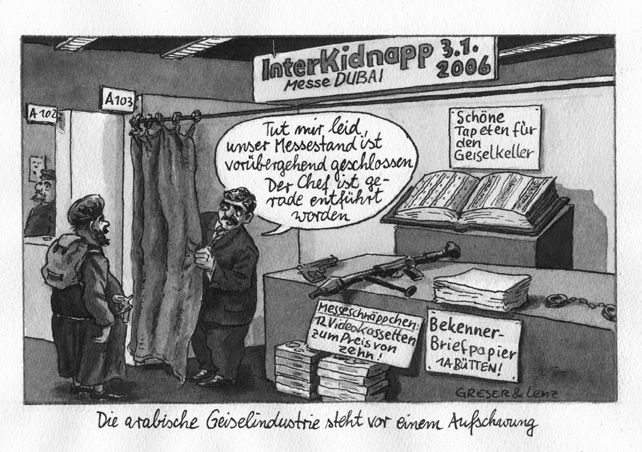 InterKidnapp 3.1.
Messe DUBAI 2006
A 103
A 102
Schöne
Tapeten für
den
Geiselkeller
Tut mir leid,
unser Messestand ist
vorübergehend geschlossen
Der Chef ist ge-
rade entführt
worden
Messeschnäppchen:
12 Videokassetten
zum Preis von
zehn!
Bekenner-
Briefpapier
1A BÜTTEN!
GRESER & LENZ
Die arabische Geiselindustrie steht vor einem Aufschwung